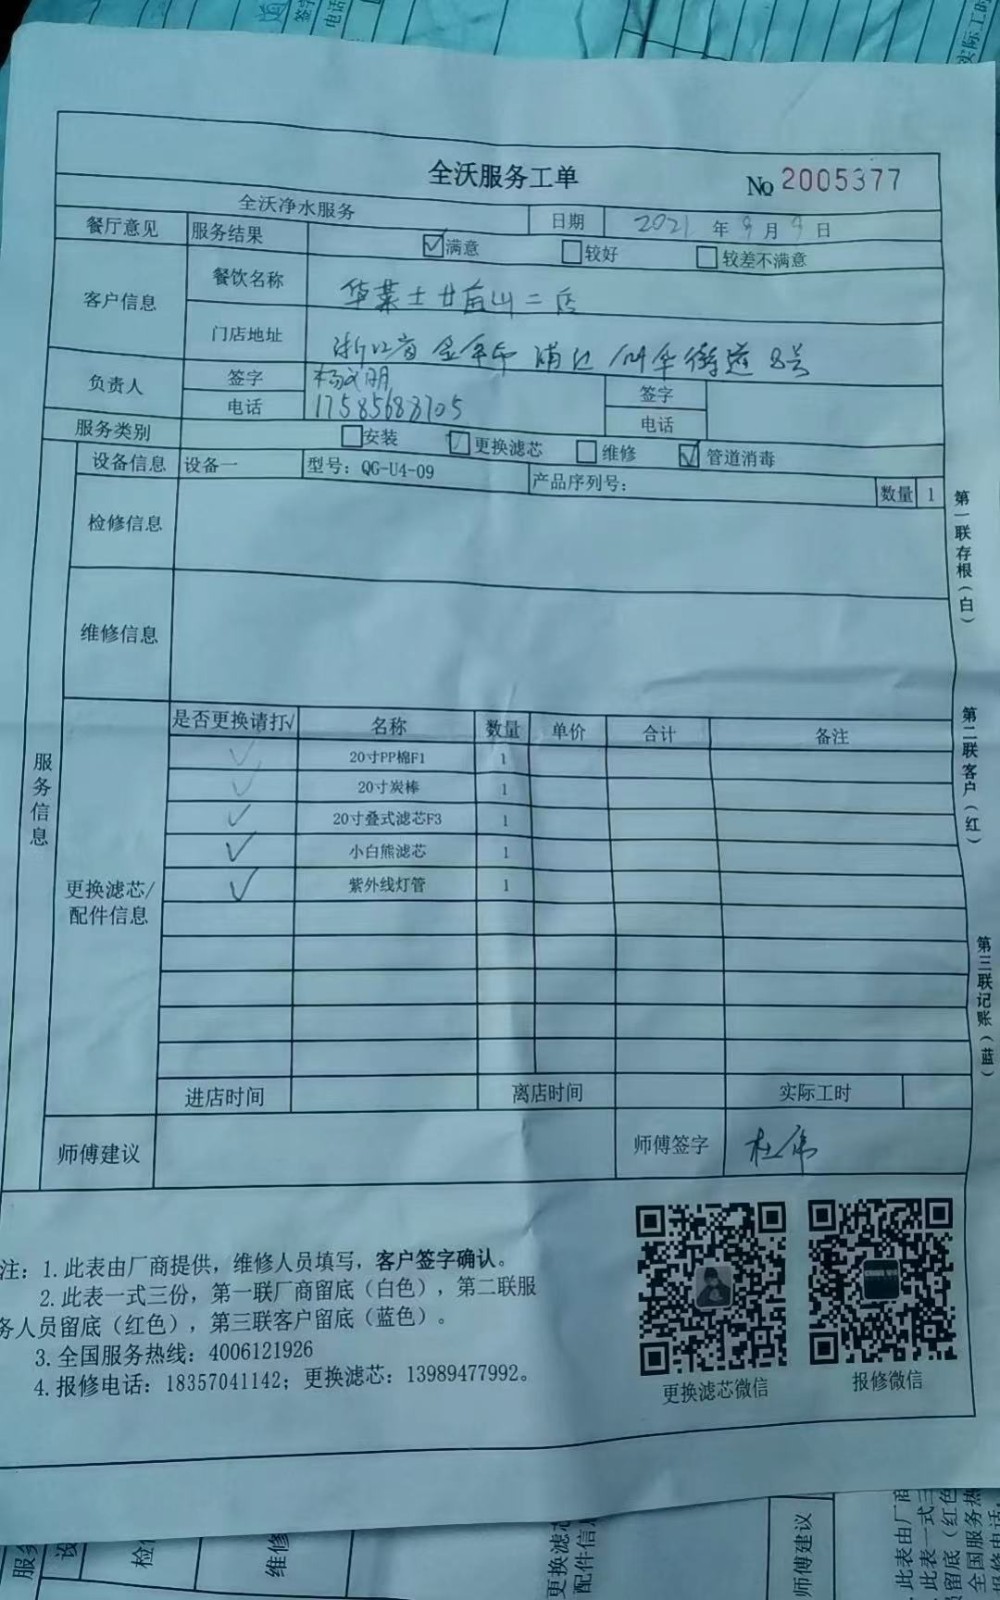 全沃服务工单 No 2005377
全沃净水服务 日期 2021 年 9 月 9 日
餐厅意见 服务结果 ☑满意 □较好 □较差不满意
客户信息 餐饮名称 华莱士 山二店
门店地址 浙江省 金华市 浦江 仙华街道 8号
负责人 签字 杨文明 签字
电话 17585688705 电话
服务类别 □安装 ☑更换滤芯 □维修 ☑管道消毒
设备信息 设备一 型号：QG-U4-09 产品序列号： 数量 1
检修信息
维修信息
服务信息
更换滤芯/配件信息
是否更换请打√ 名称 数量 单价 合计 备注
✓ 20寸PP棉F1 1
✓ 20寸炭棒 1
✓ 20寸叠式滤芯F3 1
✓ 小白熊滤芯 1
✓ 紫外线灯管 1
进店时间 离店时间 实际工时
师傅建议 师傅签字 杜伟
注：1.此表由厂商提供，维修人员填写，客户签字确认。
2.此表一式三份，第一联厂商留底（白色），第二联服
务人员留底（红色），第三联客户留底（蓝色）。
3.全国服务热线：4006121926
4.报修电话：18357041142；更换滤芯：13989477992。
更换滤芯微信 报修微信
第一联存根（白）
第二联客户（红）
第三联记账（蓝）
签字
电话
实际工时
维修
更换滤芯
配件信息
师傅建议
此表由厂商
此表一式三
留底（红色
全国服务热